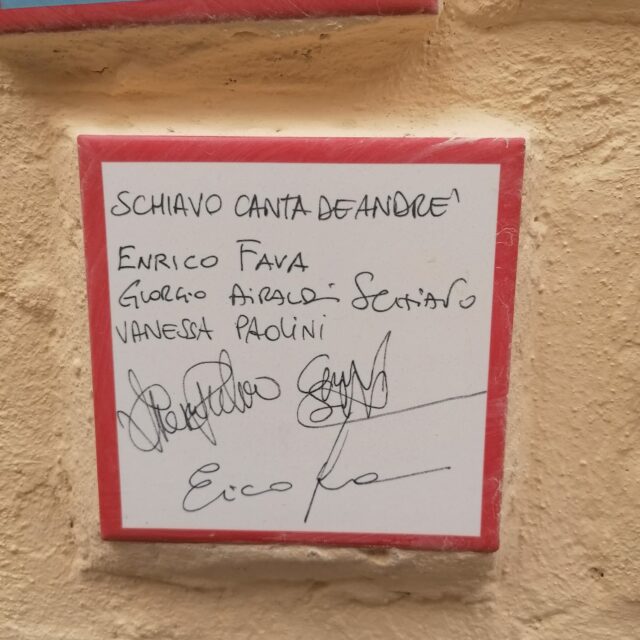 SCHIAVO CANTA DEANDRE'
ENRICO FAVA
GIORGIO AIRALDI SCHIAVO
VANESSA PAOLINI